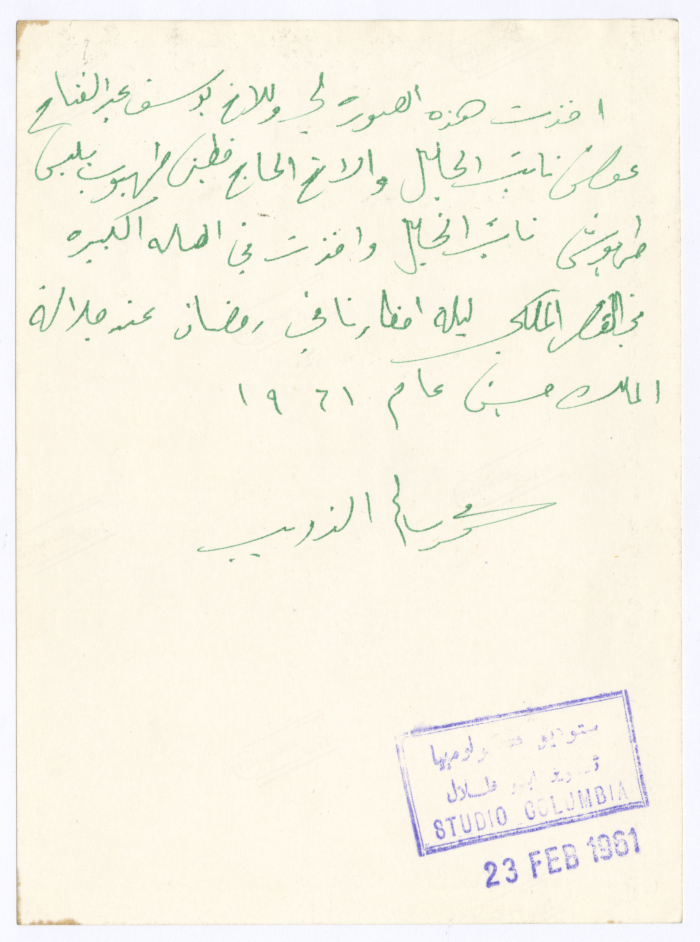 اخذت هذه الصوره لي وللاخ يوسف عبد الفتاح
عوض نائب الخليل والاخ الحاج فطين طهبوب يلبس
طربوش نائب الخليل واخذت في الصاله الكبيره
في القصر الملكي ليلة افطارنا في رمضان عند جلالة
الملك حسين عام ١٩٦١
محمد سالم الذويب
ستوديو كولومبيا
STUDIO COLUMBIA
23 FEB 1961